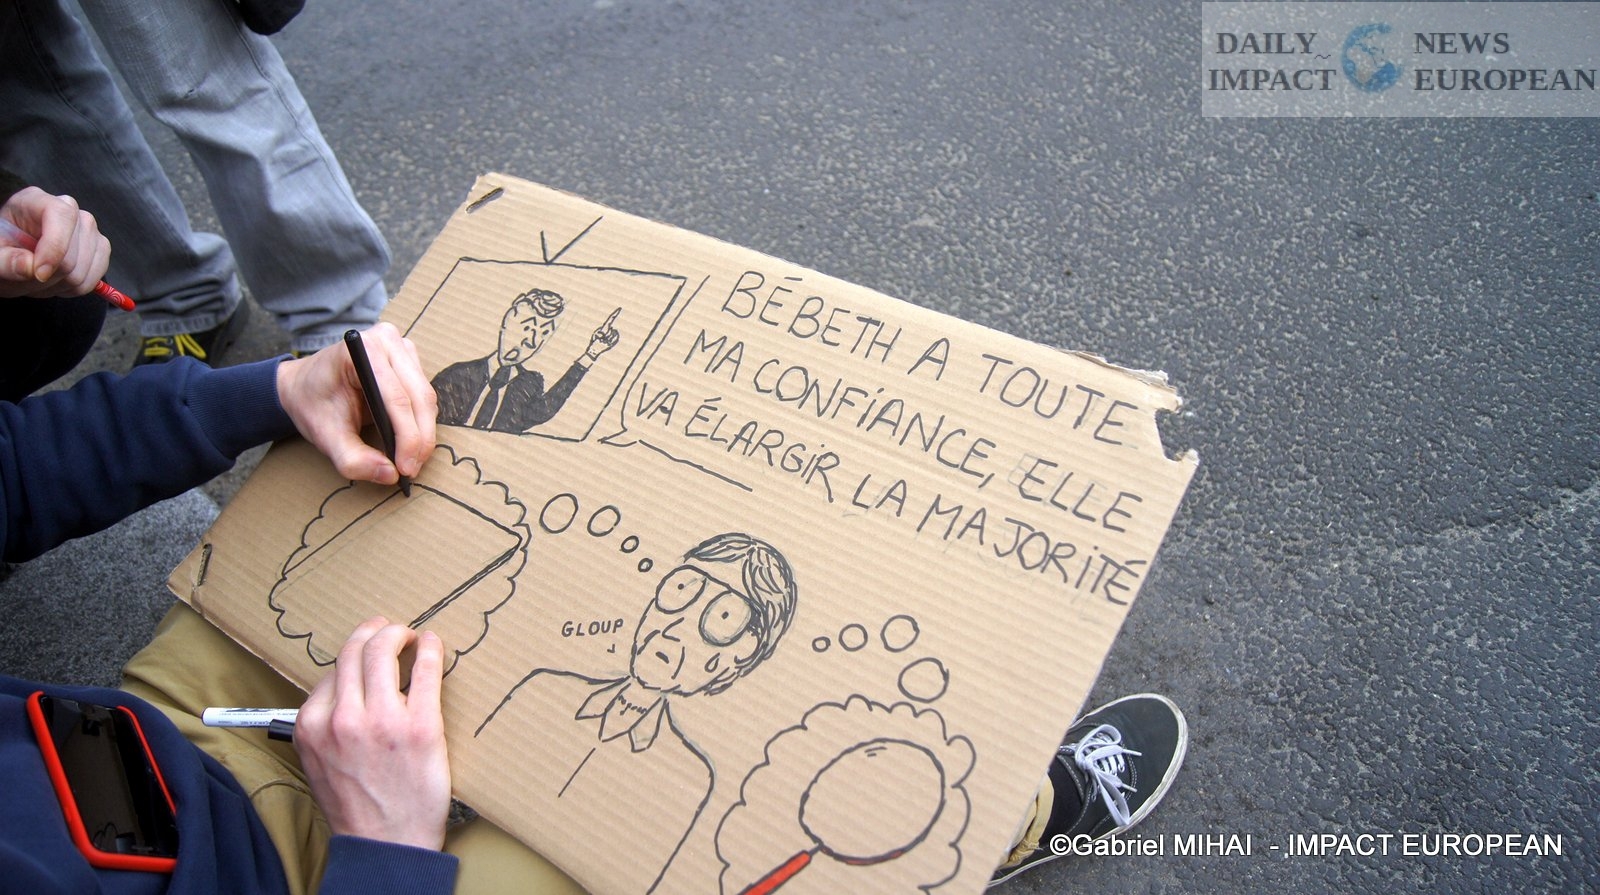 DAILY NEWS
IMPACT EUROPEAN
BÉBETH A TOUTE
MA CONFiANCE, ELLE
VA ÉLARGiR LA MAJORiTÉ
GLOUP
©Gabriel MIHAI - IMPACT EUROPEAN